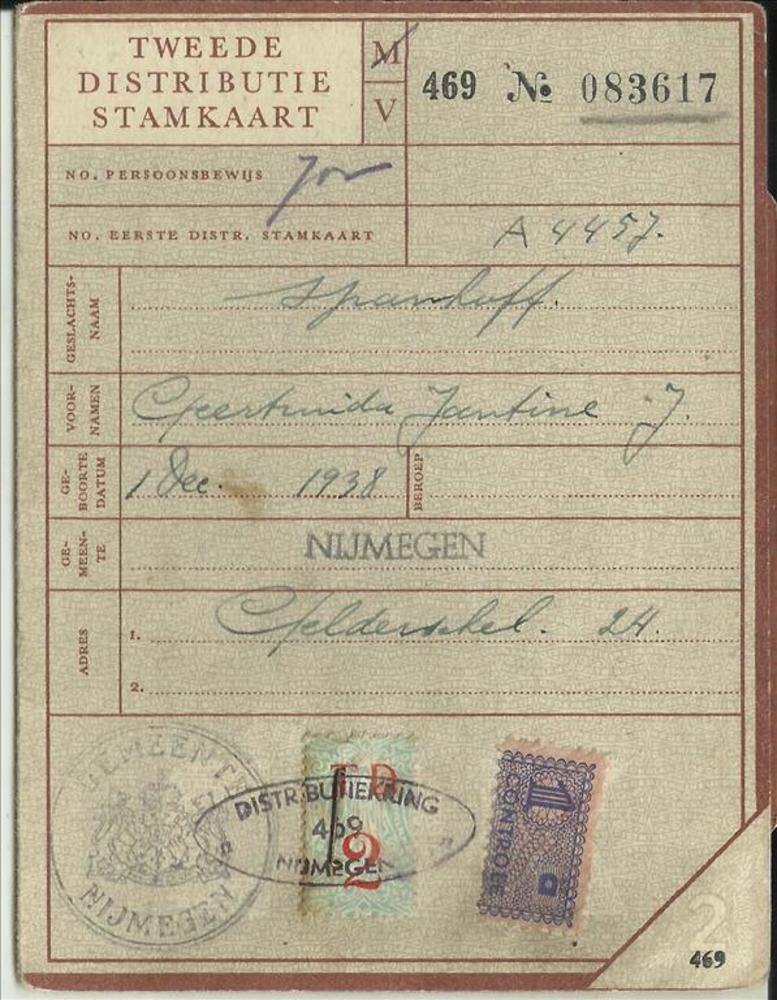 TWEEDE
DISTRIBUTIE
STAMKAART
M
V
469 No 083617
NO. PERSOONSBEWIJS
NO. EERSTE DISTR. STAMKAART A 4457.
GESLACHTS-
NAAM
Spanhoff.
VOOR-
NAMEN
Geertruida Jantine J.
GE-
BOORTE
DATUM
1 Dec. 1938
BEROEP
GE-
MEEN-
TE
NIJMEGEN
ADRES
1. 24.
2.
GEMEENTE
NIJMEGEN
T D
2
DISTRIBUTIEKRING
469
NIJMEGEN
1
CONTROLE
2
469